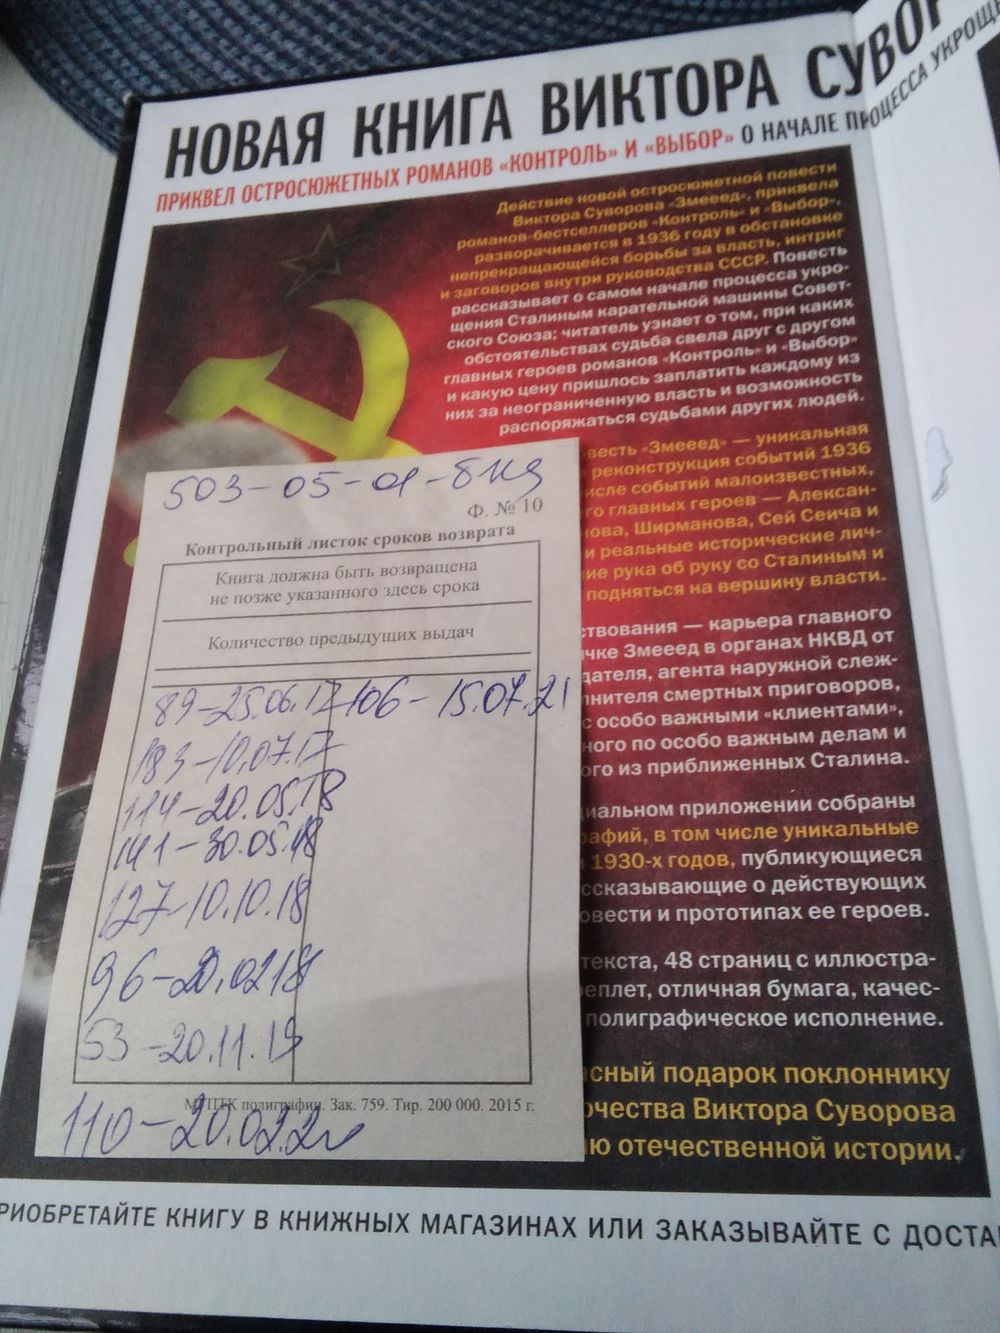 НОВАЯ КНИГА ВИКТОРА СУВОР
ПРИКВЕЛ ОСТРОСЮЖЕТНЫХ РОМАНОВ «КОНТРОЛЬ» И «ВЫБОР» О НАЧАЛЕ ПРОЦЕССА УКРОЩ
Действие новой остросюжетной повести
Виктора Суворова «Змееед», приквела
романов-бестселлеров «Контроль» и «Выбор»,
разворачивается в 1936 году в обстановке
непрекращающейся борьбы за власть, интриг
и заговоров внутри руководства СССР. Повесть
рассказывает о самом начале процесса укро-
щения Сталиным карательной машины Совет-
ского Союза; читатель узнает о том, при каких
обстоятельствах судьба свела друг с другом
главных героев романов «Контроль» и «Выбор»
и какую цену пришлось заплатить каждому из
них за неограниченную власть и возможность
распоряжаться судьбами других людей.
весть «Змееед» — уникальная
реконструкция событий 1936
исле событий малоизвестных,
го главных героев — Алексан-
нова, Ширманова, Сей Сеича и
и реальные исторические лич-
ие рука об руку со Сталиным и
подняться на вершину власти.
ствования — карьера главного
ичке Змееед в органах НКВД от
дателя, агента наружной слеж-
лнителя смертных приговоров,
с особо важными «клиентами»,
ного по особо важным делам и
ого из приближенных Сталина.
циальном приложении собраны
рафий, в том числе уникальные
1930-х годов, публикующиеся
ссказывающие о действующих
овести и прототипах ее героев.
текста, 48 страниц с иллюстра-
еплет, отличная бумага, качес-
полиграфическое исполнение.
асный подарок поклоннику
рчества Виктора Суворова
ю отечественной истории.
503-05-01-
Ф. № 10
Контрольный листок сроков возврата
Книга должна быть возвращена
не позже указанного здесь срока
Количество предыдущих выдач
89-25.06.17 106-15.07.21
183-10.07.17
114-20.05.18
141-30.05.18
127-10.10.18
96-20.0218
53-20.11.19
полиграфии. Зак. 759. Тир. 200 000. 2015 г.
110-20.02.2
РИОБРЕТАЙТЕ КНИГУ В КНИЖНЫХ МАГАЗИНАХ ИЛИ ЗАКАЗЫВАЙТЕ С ДОСТА